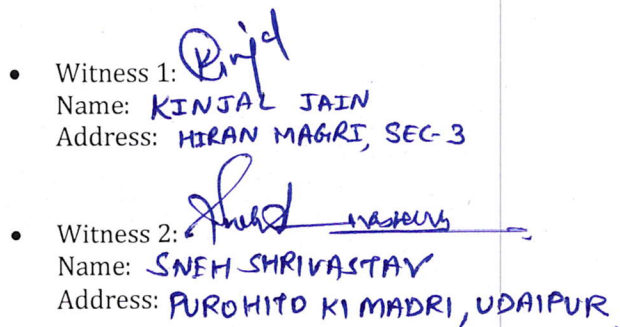 • Witness 1: Kinjal
Name: KINJAL JAIN
Address: HIRAN MAGRI, SEC-3
• Witness 2:
Name: SNEH SHRIVASTAV
Address: PUROHITO KI MADRI, UDAIPUR